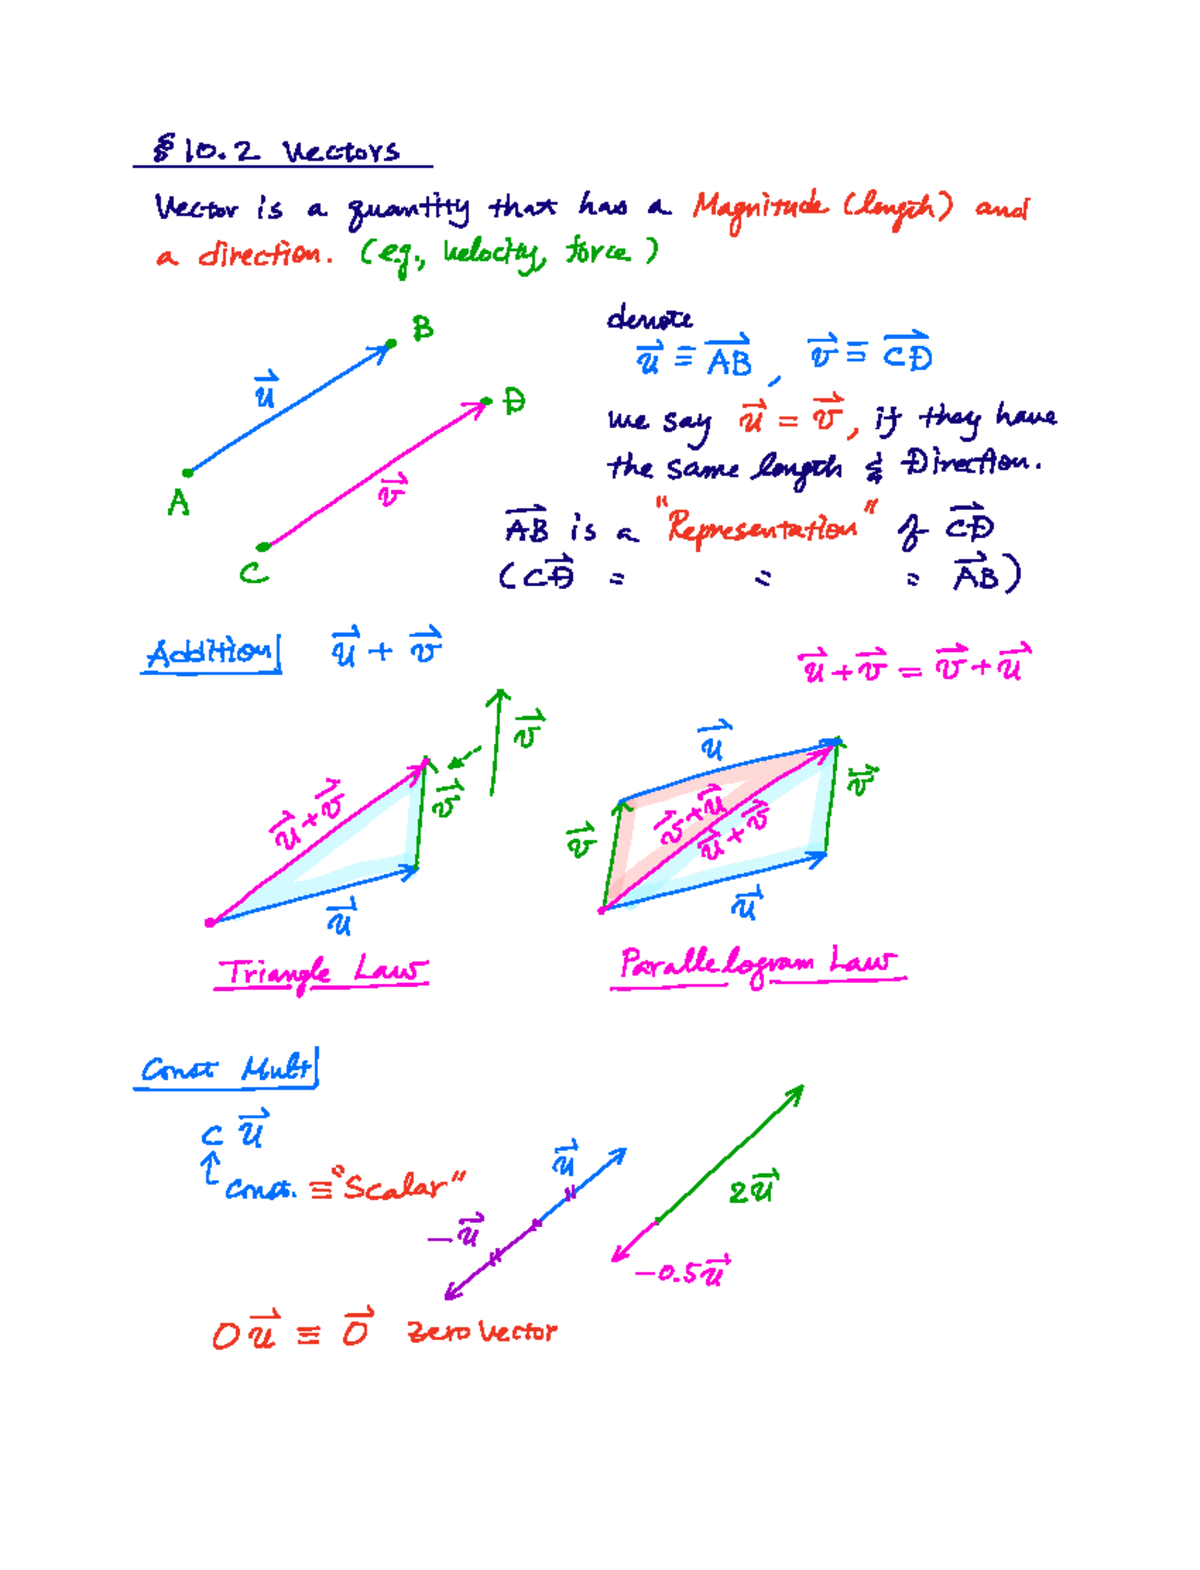 § 10.2 Vectors
Vector is a quantity that has a Magnitude (length) and
a direction. (e.g., velocity, force)
B
u⃗
D
A
v⃗
C
denote
u⃗ ≡ A⃗B⃗, v⃗ ≡ C⃗D⃗
we say u⃗ = v⃗, if they have
the same length & Direction.
A⃗B⃗ is a "Representation" of C⃗D⃗
(C⃗D⃗ = = = A⃗B⃗)
Addition u⃗ + v⃗
u⃗ + v⃗ = v⃗ + u⃗
v⃗
u⃗ + v⃗
v⃗
u⃗
Triangle Law
u⃗
v⃗
v⃗ + u⃗
u⃗ + v⃗
v⃗
u⃗
Parallelogram Law
Const Mult
c u⃗
const. ≡ "Scalar"
u⃗
-u⃗
2u⃗
-0.5u⃗
0u⃗ ≡ 0⃗ Zero Vector